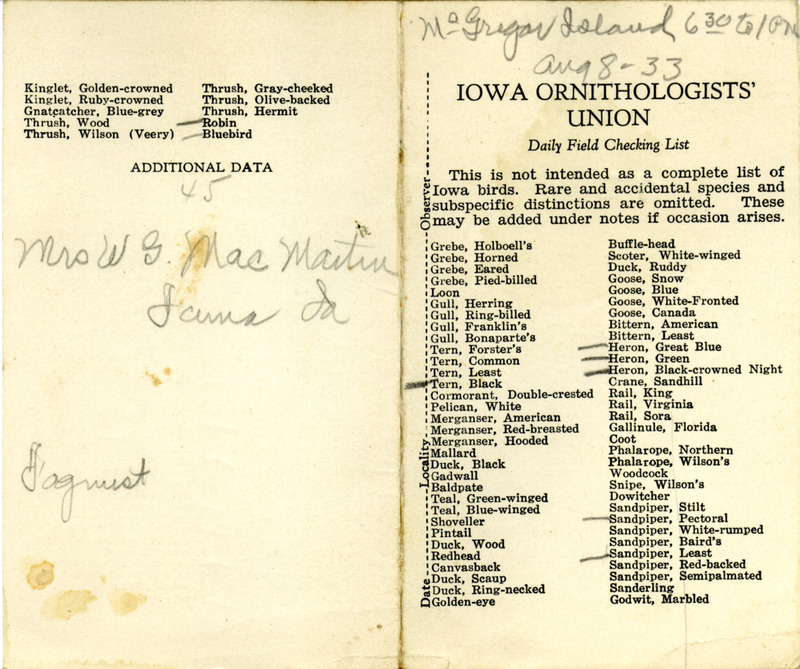 Kinglet, Golden-crowned
Kinglet, Ruby-crowned
Gnatcatcher, Blue-grey
Thrush, Wood
Thrush, Wilson (Veery)
Thrush, Gray-cheeked
Thrush, Olive-backed
Thrush, Hermit
Robin
Bluebird
ADDITIONAL DATA
45
Mrs W. G. MacMartin
Tama Ia
McGregor Island 6 30 to 1 PM
Aug 8-33
IOWA ORNITHOLOGISTS'
UNION
Daily Field Checking List
This is not intended as a complete list of
Iowa birds. Rare and accidental species and
subspecific distinctions are omitted. These
may be added under notes if occasion arises.
Date Locality Observer
Grebe, Holboell's
Grebe, Horned
Grebe, Eared
Grebe, Pied-billed
Loon
Gull, Herring
Gull, Ring-billed
Gull, Franklin's
Gull, Bonaparte's
Tern, Forster's
Tern, Common
Tern, Least
Tern, Black
Cormorant, Double-crested
Pelican, White
Merganser, American
Merganser, Red-breasted
Merganser, Hooded
Mallard
Duck, Black
Gadwall
Baldpate
Teal, Green-winged
Teal, Blue-winged
Shoveller
Pintail
Duck, Wood
Redhead
Canvasback
Duck, Scaup
Duck, Ring-necked
Golden-eye
Buffle-head
Scoter, White-winged
Duck, Ruddy
Goose, Snow
Goose, Blue
Goose, White-Fronted
Goose, Canada
Bittern, American
Bittern, Least
Heron, Great Blue
Heron, Green
Heron, Black-crowned Night
Crane, Sandhill
Rail, King
Rail, Virginia
Rail, Sora
Gallinule, Florida
Coot
Phalarope, Northern
Phalarope, Wilson's
Woodcock
Snipe, Wilson's
Dowitcher
Sandpiper, Stilt
Sandpiper, Pectoral
Sandpiper, White-rumped
Sandpiper, Baird's
Sandpiper, Least
Sandpiper, Red-backed
Sandpiper, Semipalmated
Sanderling
Godwit, Marbled